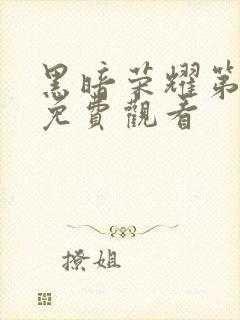 黑暗荣耀第
免費觀看
撩姐